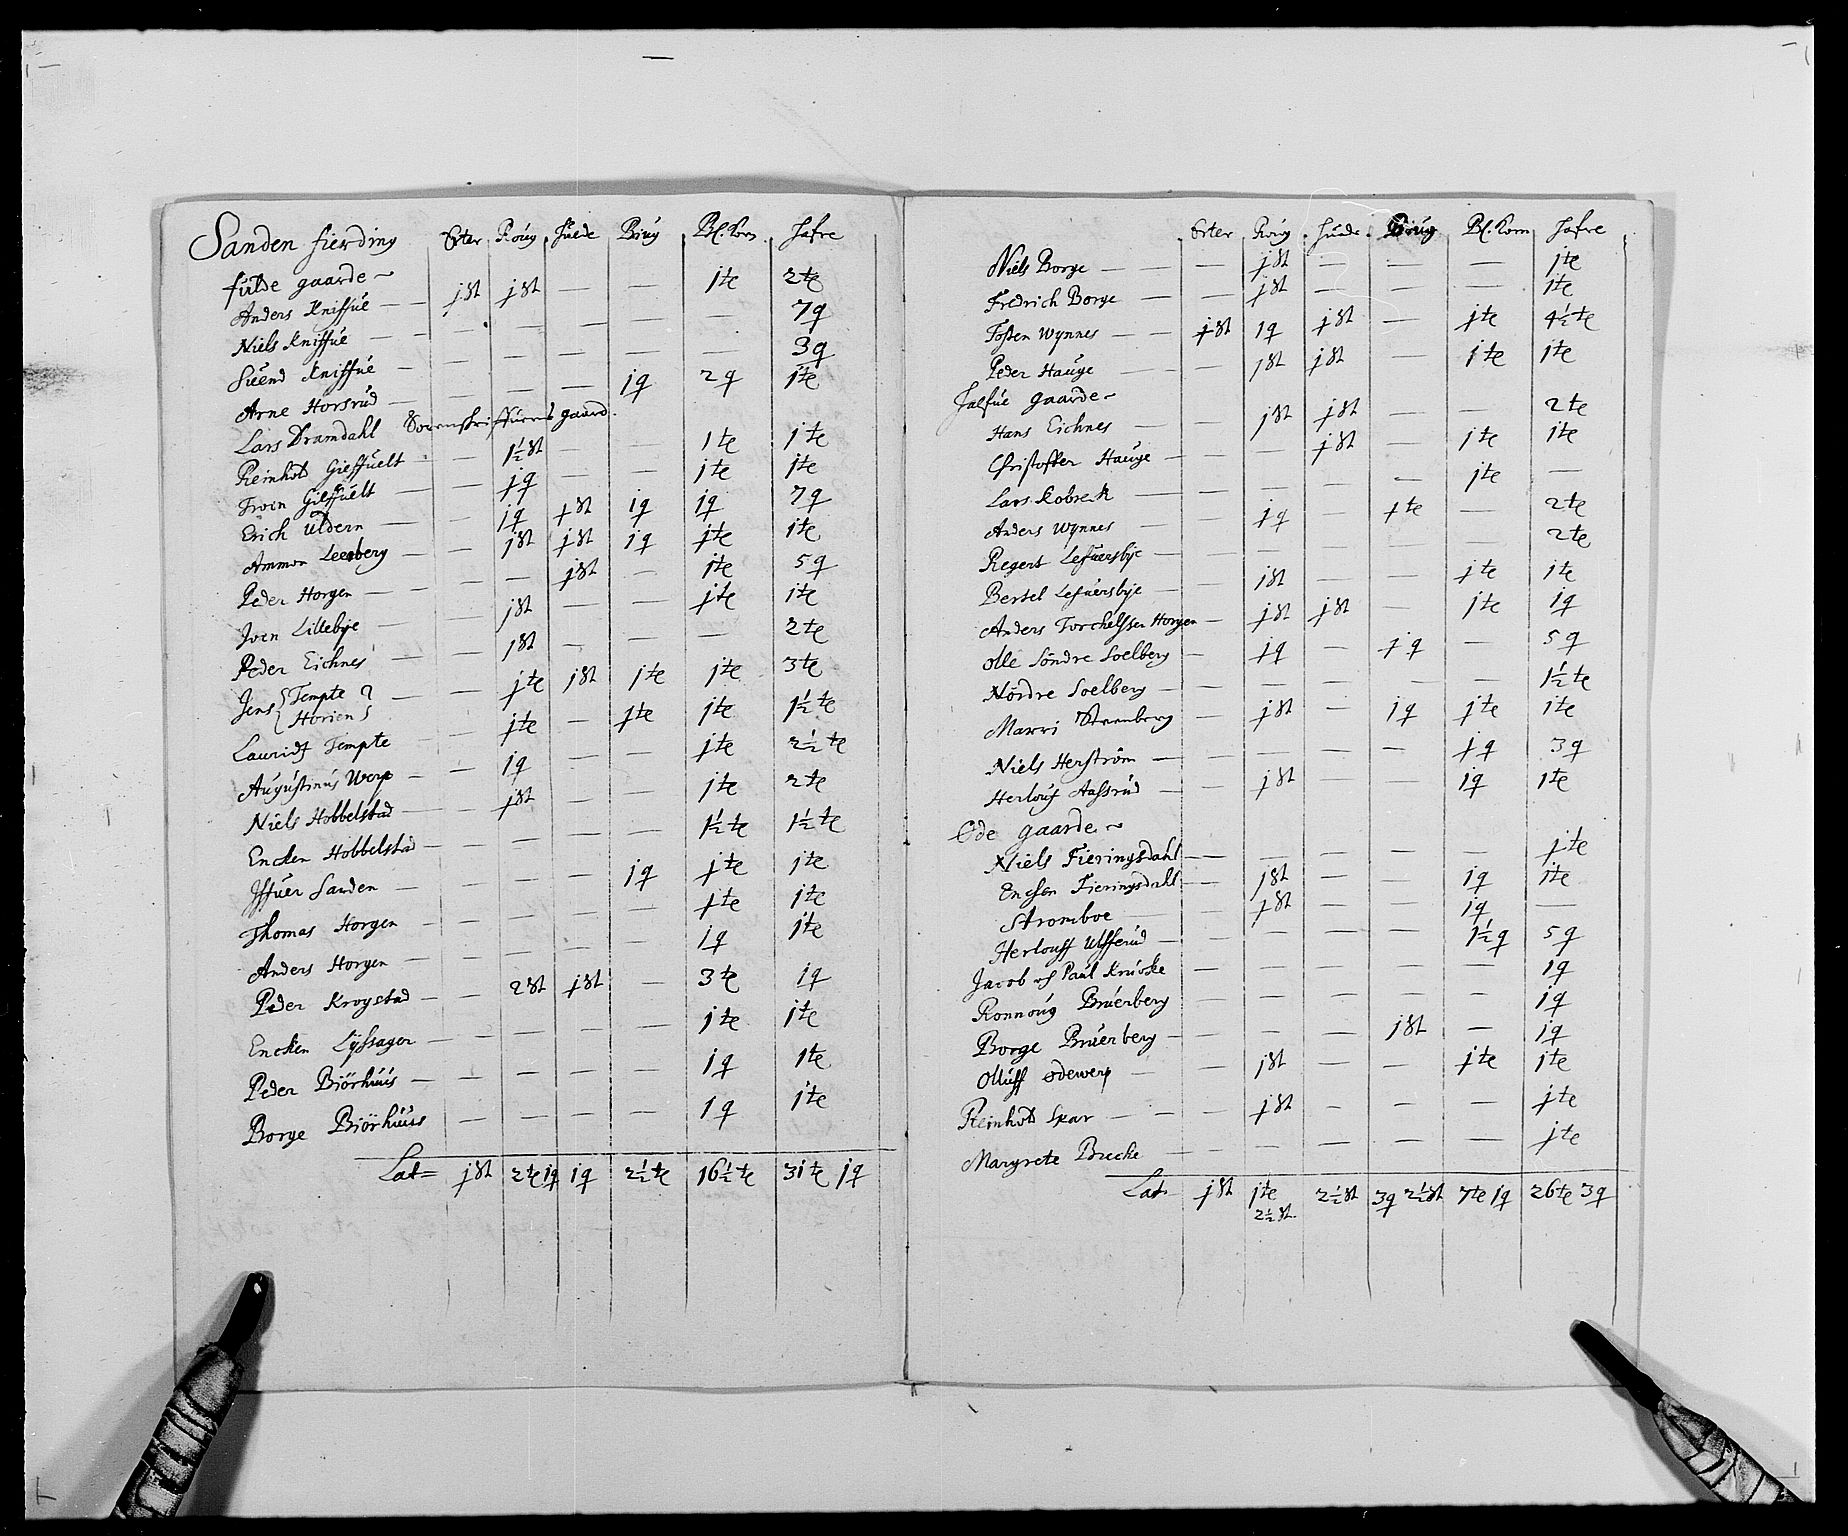 Sanden fierding Erter Roug Huede Biug Bl. Korn Hafre
fulde gaarde
Anders Kniffue — — j st j st — — 1 te 2 te
Niels Kniffue — — — — — 7 q
Suend Kniffue — — — — — — 3 q
Arne Horsrud — — — — j q 2 q j te
Lars Dramdahl Sorenskriffuers gaard.
Reinholt Gieffuelt — — 1½ st — — 1 te 1 te
Iwen Gieffuelt — — j q — — j te 1 te
Erich Uldern — — j q j st j q j q 7 q
Ammon Leerberg — — j st j st j q j te 1 te
Peder Horgen — — — — j st — 1 te 5 q
Joen Lillebye — — j st — — j te 1 te
Peder Eichnes — — j st — — — 2 te
Jens { Tempte — — j te j st j te j te 3 te
Horien
Lauridt Tempte j te — j te j te 1½ te
Augustinus Werp — — j q — — j te 2½ te
Niels Hobbelstad — — j st — — 1 te 2 te
Encken Hobbelstad — — — — — 1½ te 1½ te
Iffuer Sanden — — — — — j q j te j te
Thomas Horgen — — — — j te 1 te
Anders Horgen — — — — — j q 1 te
Peder Krogstad — — 2 st j st — 3 te 1 q
Encken Lyssager — — — — — j te j te
Peder Biörhuus — — — — — 1 q 1 te
Borge Biörhuus — — — — 1 q 1 te
Lat= j st 2 te 1 q 1 q 2½ te 16½ te 31 te j q
Erter Roug Huede Biug Bl. Korn Hafre
Niels Borge — — — j st — — — j te
Fredrich Borge — — j st — — — 1 te
Tosten Wynnes — — j st 1 q j st — j te 4½ te
Peder Hauge — — j st j st — 1 te 1 te
Halfue gaarde
Hans Eichnes — — j st j st — — 2 te
Christoffer Hauge — — — j st — 1 te 1 te
Lars Kobreck — — — — — j te —
Anders Wynnes — — j q — j te — 2 te
Regert Lefuersbye — — — — — — 2 te
Bertel Lefuersbye — — j st — — j te 1 te
Anders Torchelssen Horgen — j st j st — 1 te 1 q
Olle Söndre Soelberg — j q — j q — 5 q
Nördre Soelberg — — — — — — 1½ te
Marri Steenberg — j st — 1 q j te 1 te
Niels Herström — — — — — j q 3 q
Herlouf Aassrud — — j st — 1 q 1 te
Ode gaarde
Niels Fieringsdahl — — — — — — j te
Encken Fieringsdahl — — j st — — 1 q 1 te
Stromboe — j st — — 1 q —
Herlouff Ulfferud — — — — — 1½ q 5 q
Jacob och Paul Kruske — — — — — 1 q
Ronnoug Bruerberg — — — — — — 1 q
Borge Bruerberg — — — — j st — 1 q
Olluff ödewerp — — j st — — j te 1 te
Reinholt Spar — — — j st — — — j te
Margrete Brecke — — — — — — j te
Lat= j st j te 2½ st 3 q 2½ st 7 te 1 q 26 te 3 q
2½ st.